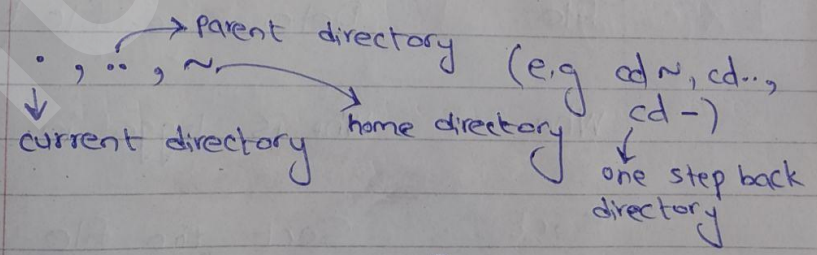 parent directory
., .., ~ (e.g cd ~, cd..,
cd -)
current directory
home directory
one step back
directory